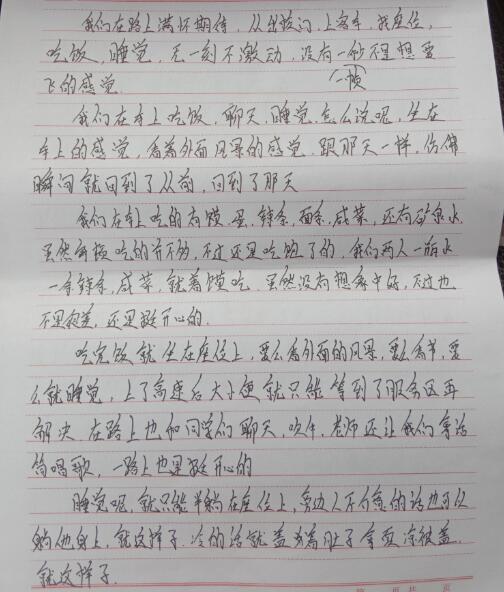 我们在路上满怀期待，从出校门，上客车，找座位，
吃饭，睡觉，无一刻不激动，没有一秒不是想要
飞的感觉.
我们在车上吃饭，聊天，睡觉.怎么说呢，坐在
车上的感觉，看着外面风景的感觉.跟那天一样，仿佛
瞬间就回到了从前，回到了那天
我们在车上吃的有馍，蛋，辣条，面条，咸菜，还有矿泉水
虽然每顿吃的并不多，不过还是吃饱了的，我们两人一瓶水
一条辣条，咸菜，就着馍吃.虽然没有想象中好，不过也
不是很差，还是挺开心的.
吃完饭就坐在座位上，要么看外面的风景，要么看书，要
么就睡觉，上了高速后大小便就只能等到了服务区再
解决.在路上也和同学们聊天，吹牛，老师还让我们拿话
筒唱歌，一路上也是挺开心的
睡觉呢，就只能半躺在座位上，旁边人不介意的话也可以
躺他身上，就这样子.冷的话就盖
就这样子.